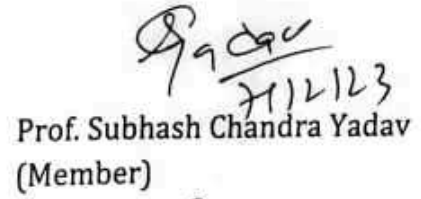 Yadav
7/12/23
Prof. Subhash Chandra Yadav
(Member)